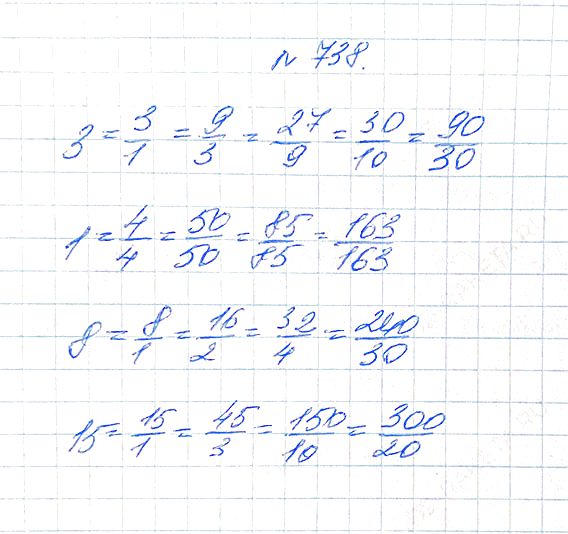 № 738.
3 = 3/1 = 9/3 = 27/9 = 30/10 = 90/30
1 = 4/4 = 50/50 = 85/85 = 163/163
8 = 8/1 = 16/2 = 32/4 = 240/30
15 = 15/1 = 45/3 = 150/10 = 300/20